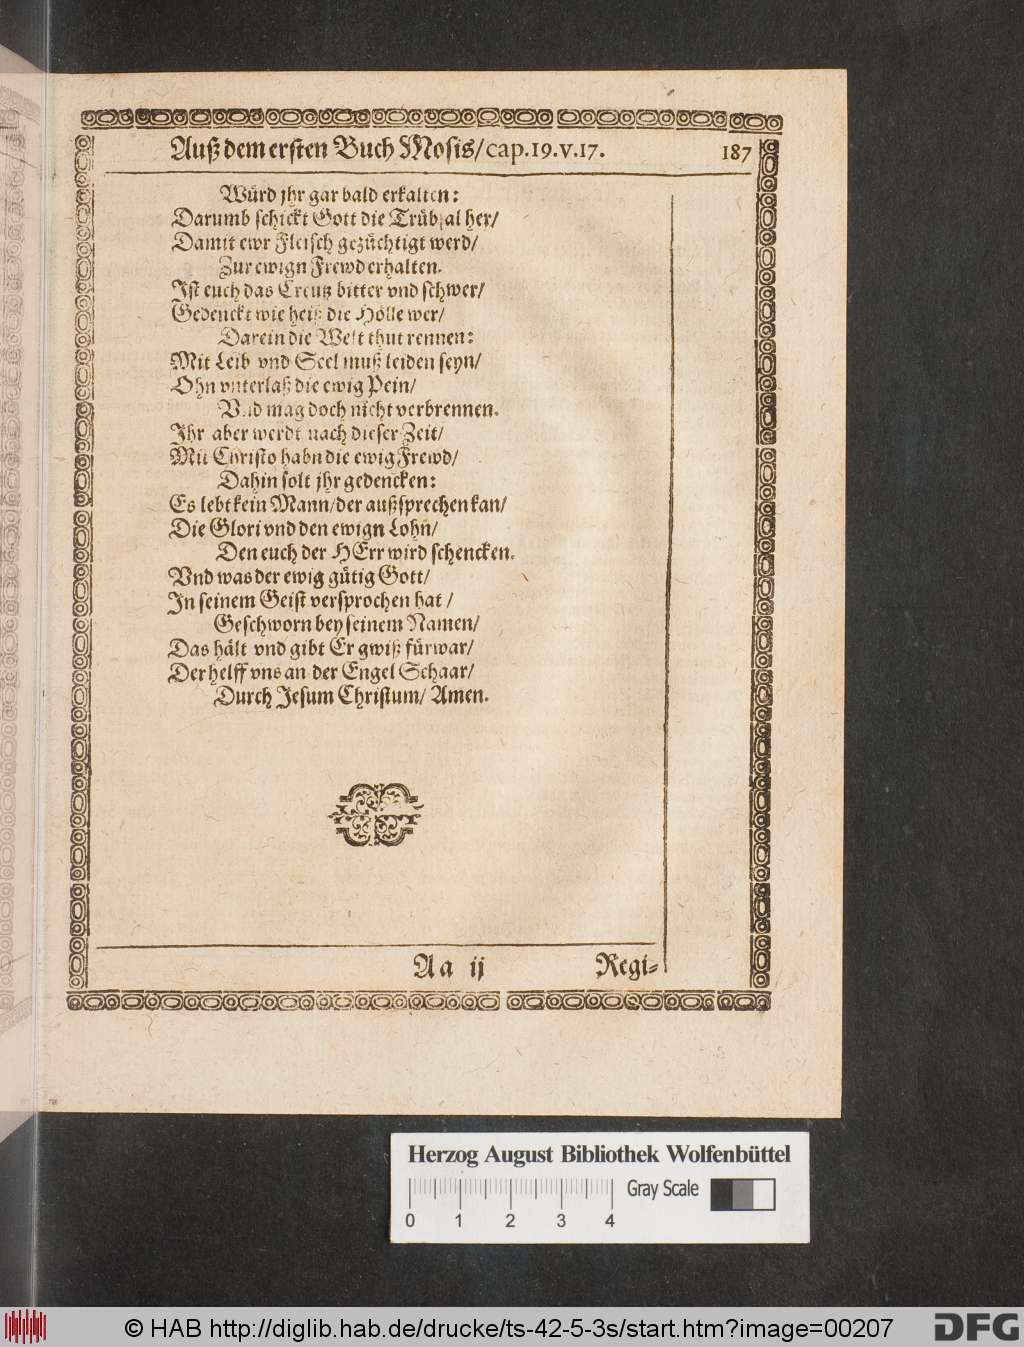 Auß dem ersten Buch Mosis/cap.19.v.17. 187
Würd jhr gar bald erkalten:
Darumb schickt Gott die Trübsal her/
Damit ewr Fleisch gezüchtigt werd/
Zur ewign Frewd erhalten.
Ist euch das Creutz bitter vnd schwer/
Gedenckt wie heiß die Hölle wer/
Darein die Welt thut rennen:
Mit Leib vnd Seel muß leiden seyn/
Ohn vnterlaß die ewig Pein/
Vnd mag doch nicht verbrennen.
Ihr aber werdt nach dieser Zeit/
Mit Christo habn die ewig Frewd/
Dahin solt jhr gedencken:
Es lebt kein Mann/der außsprechen kan/
Die Glori vnd den ewign Lohn/
Den euch der HErr wird schencken.
Vnd was der ewig gütig Gott/
In seinem Geist versprochen hat/
Geschworn bey seinem Namen/
Das hält vnd gibt Er gwiß fürwar/
Der helff vns an der Engel Schaar/
Durch Jesum Christum/ Amen.
Aa ij Regi=
Herzog August Bibliothek Wolfenbüttel
Gray Scale
0 1 2 3 4
© HAB http://diglib.hab.de/drucke/ts-42-5-3s/start.htm?image=00207
DFG